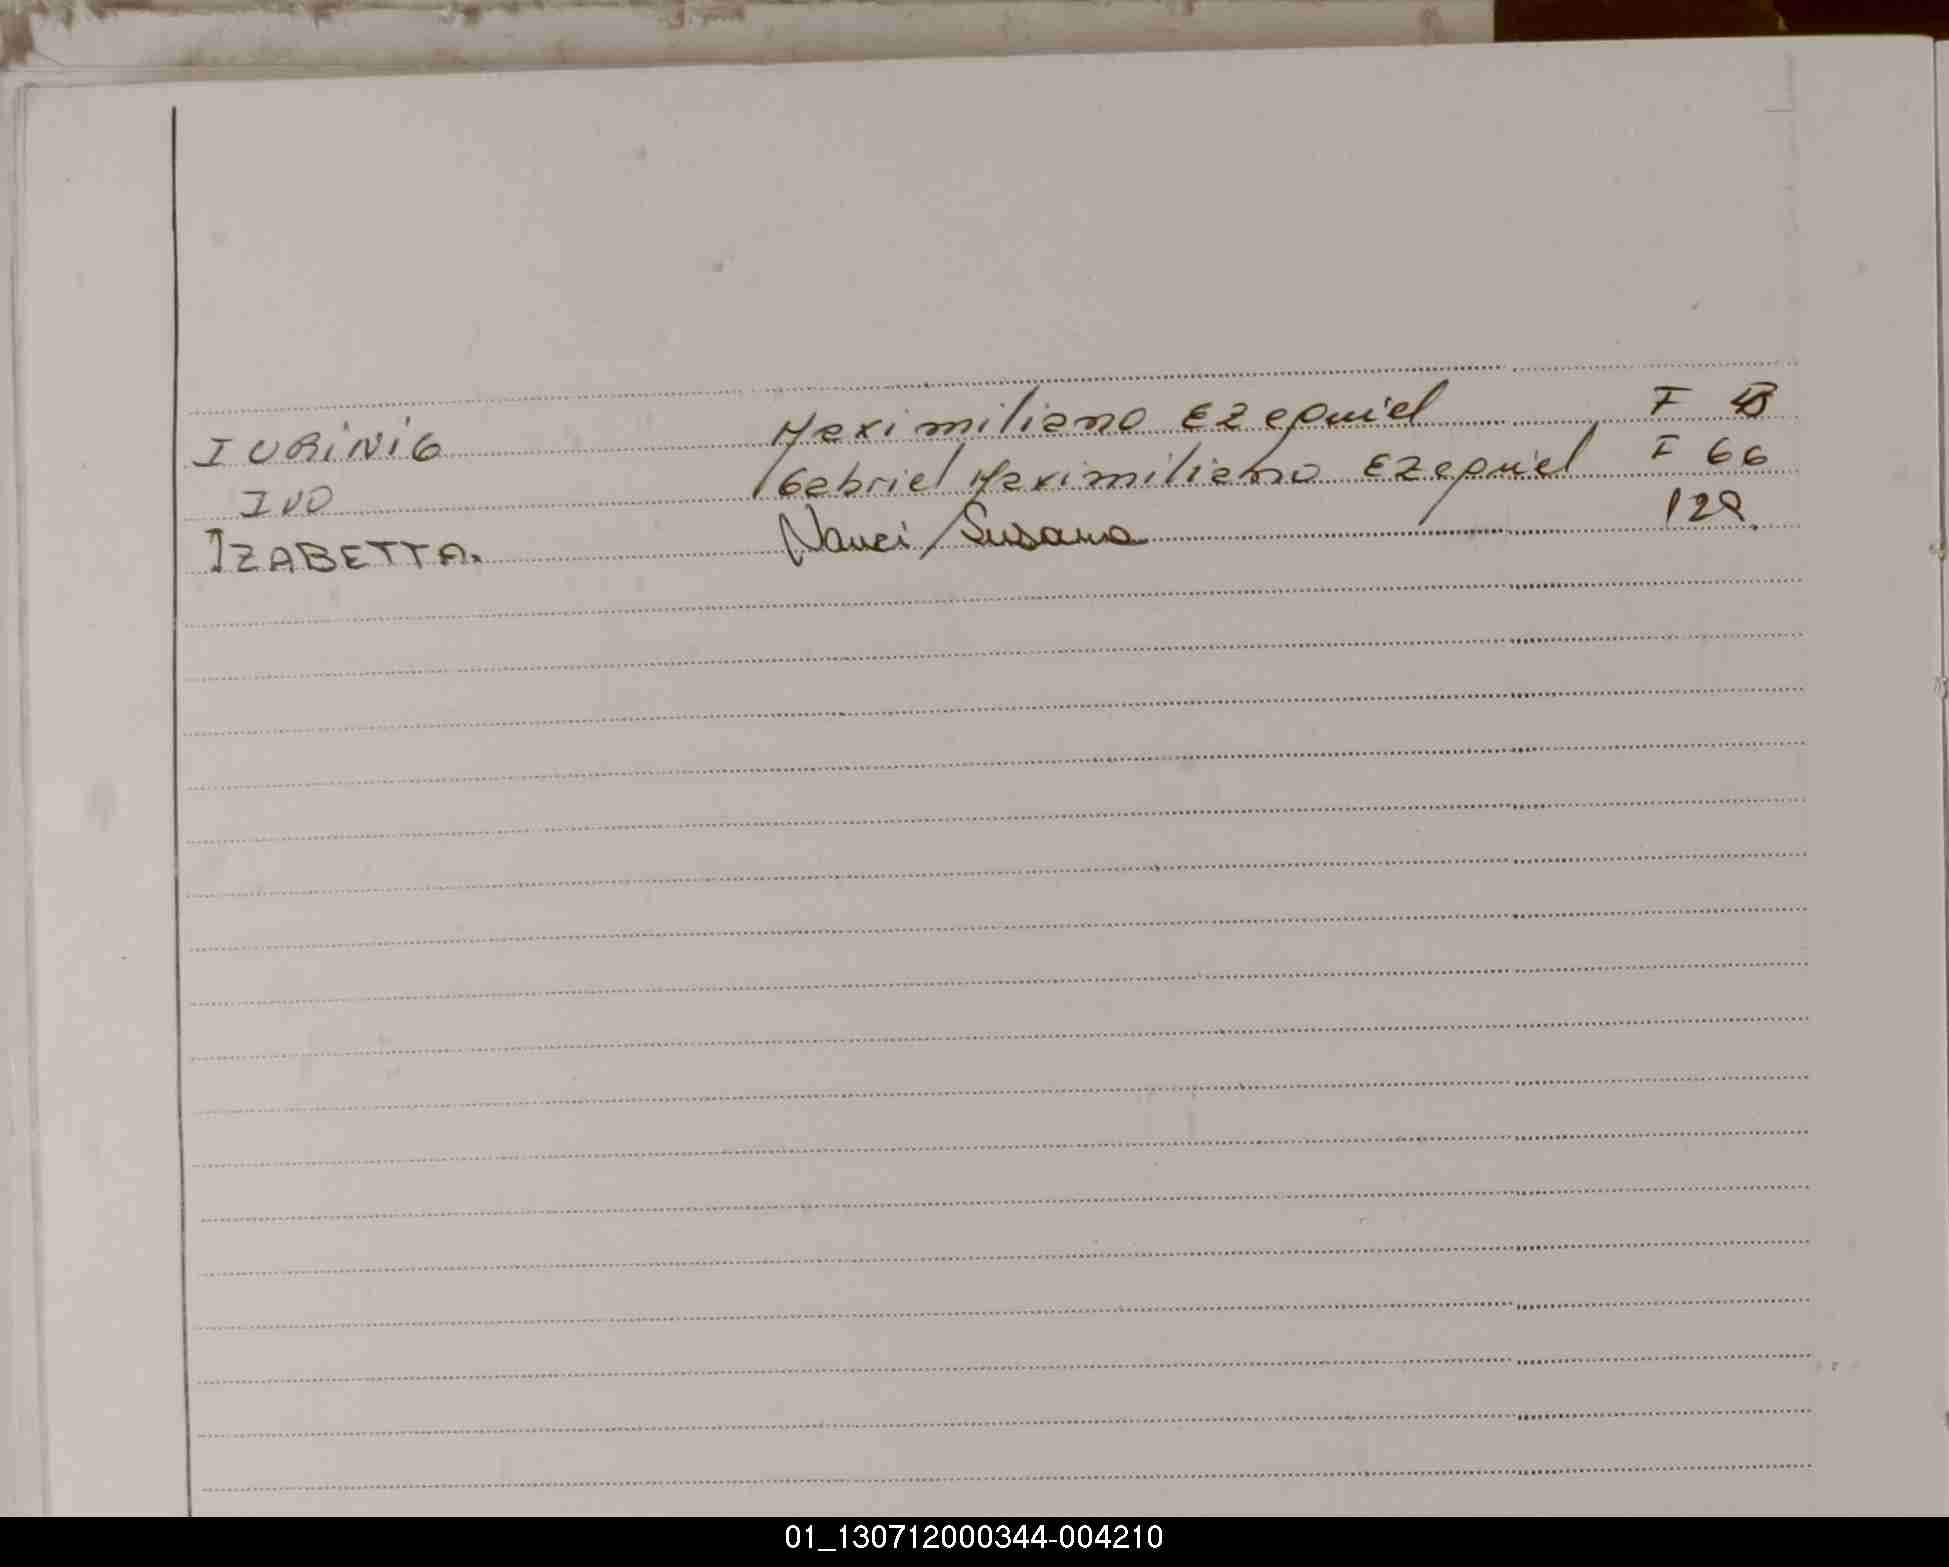 IURINIG Maximiliano Ezequiel F
IVO Gabriel Maximiliano Ezequiel F 66
IZABETTA. Nanci Susana 129
01_130712000344-004210